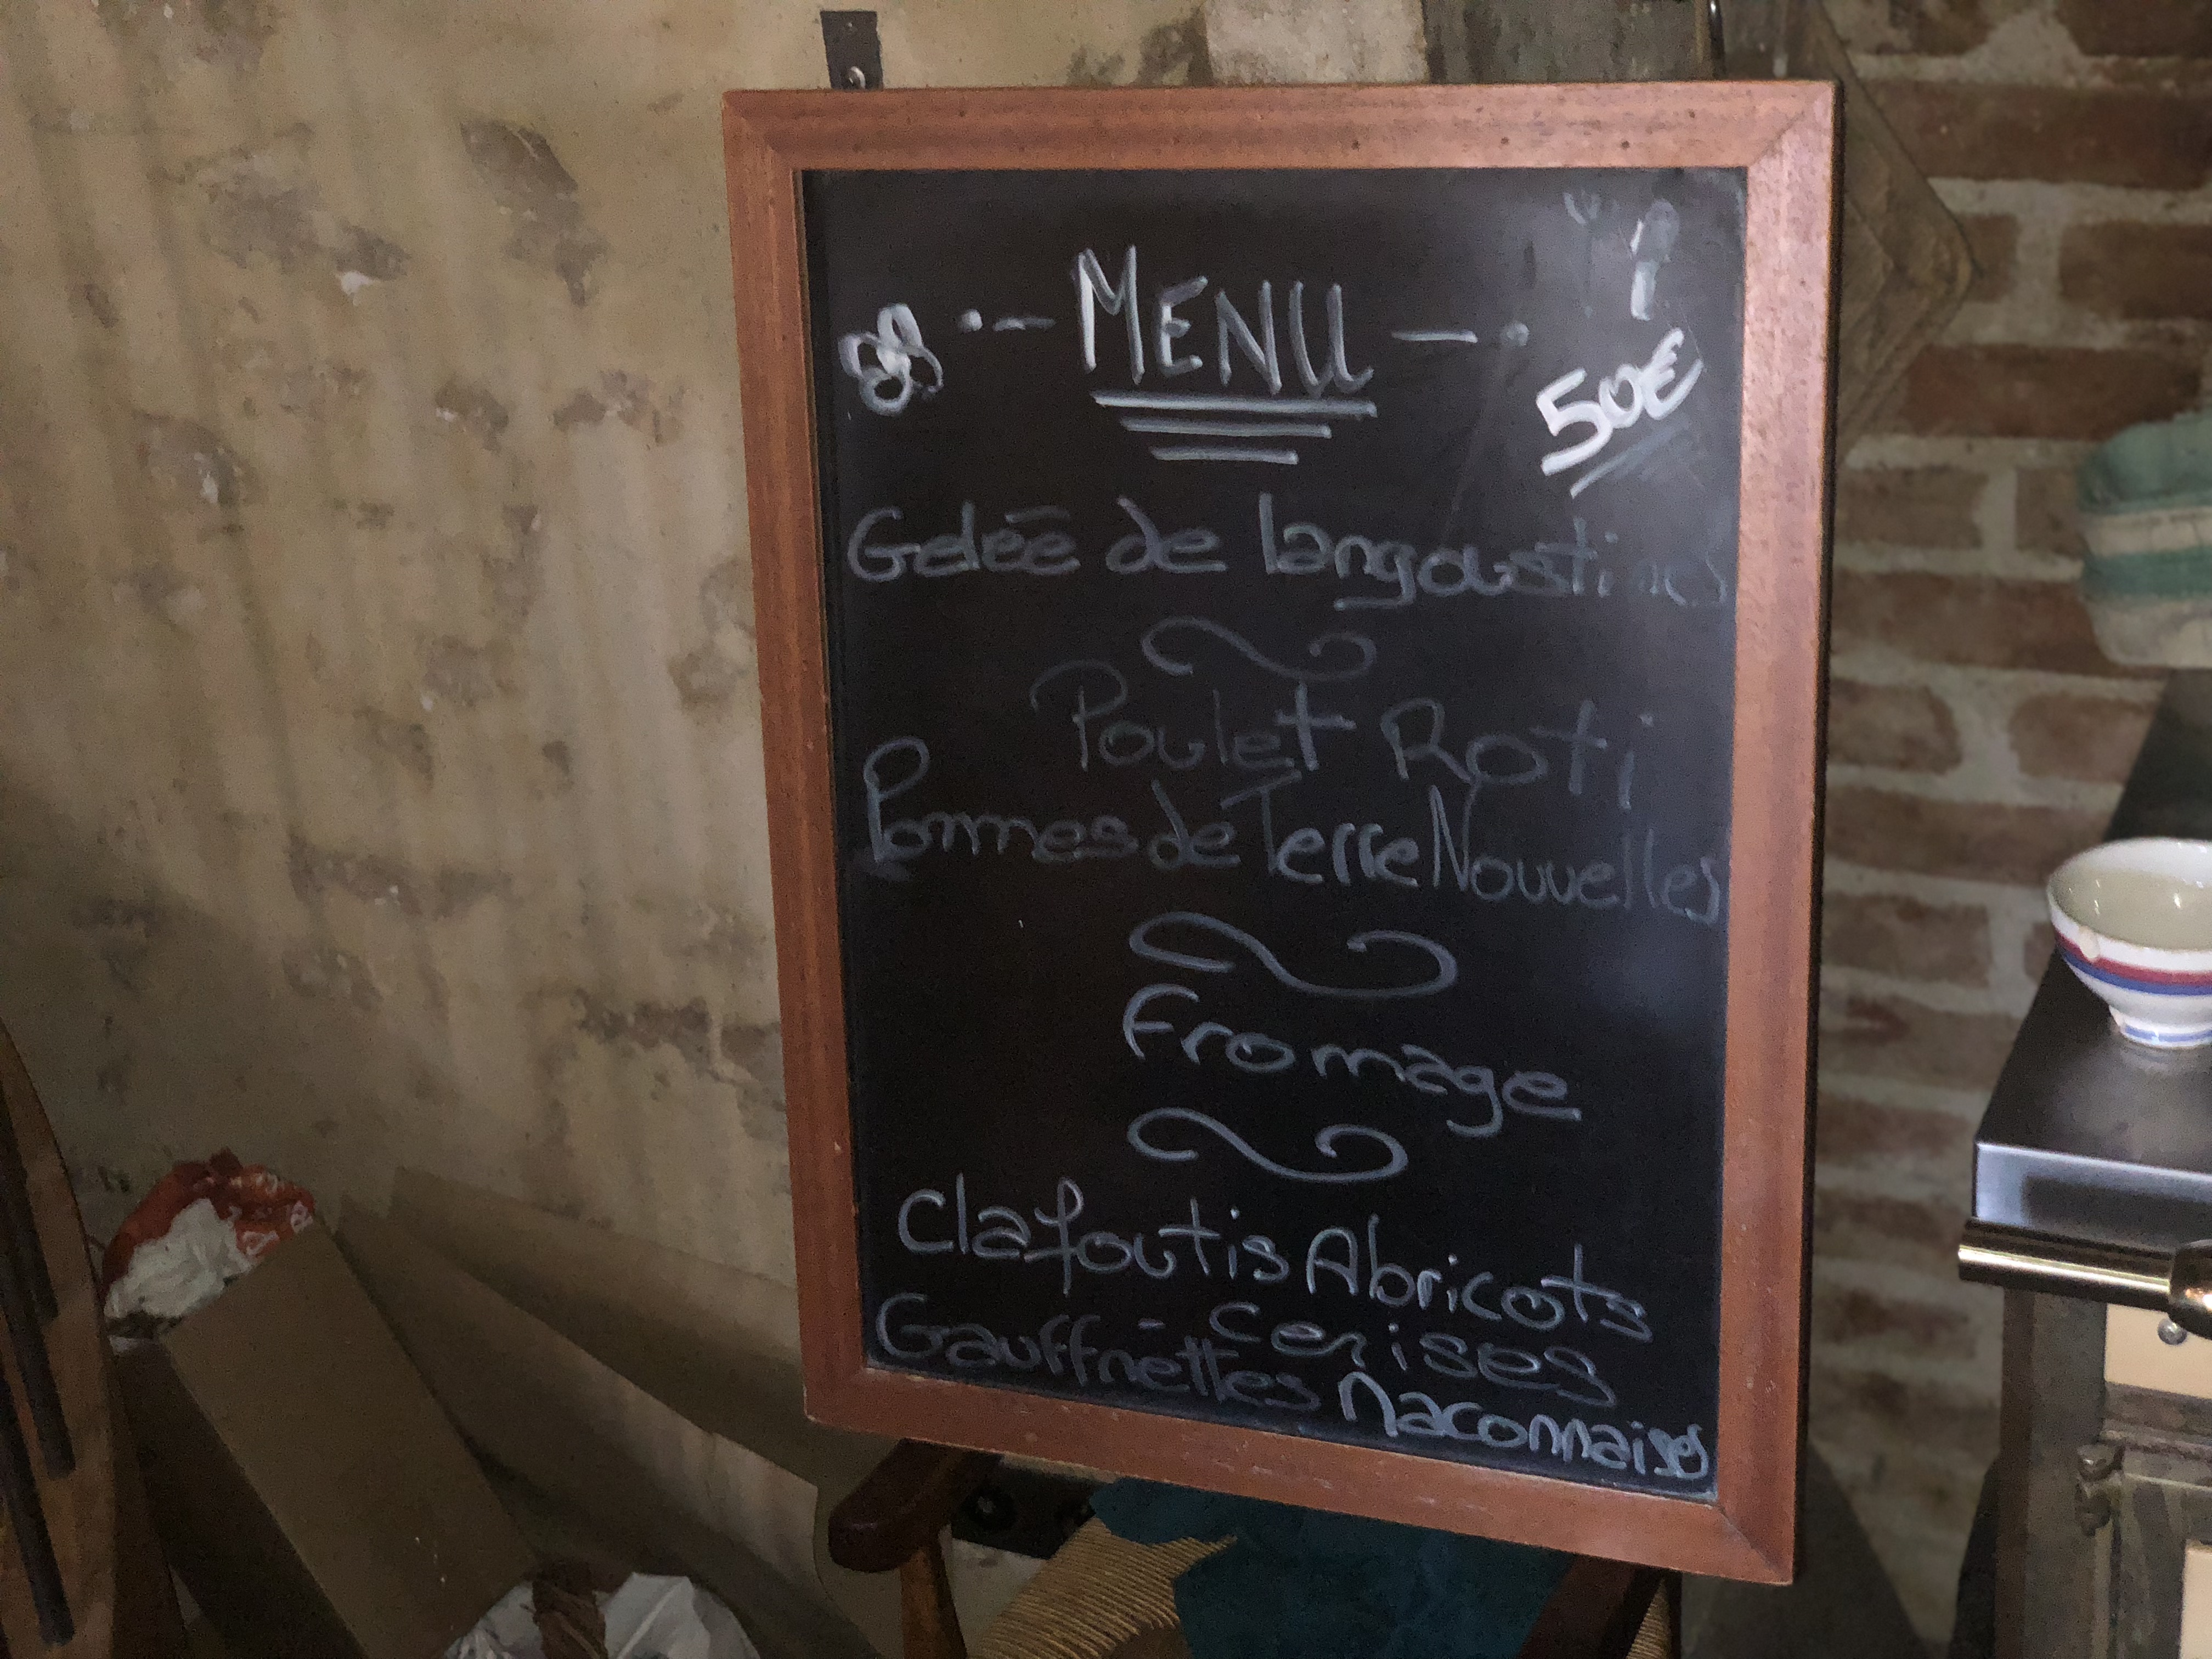 MENU
50€
Gelée de langoustines
Poulet Roti
Pommes de Terre Nouvelles
Fromage
Clafoutis Abricots
- Cerises
Gauffrettes Maconnaises